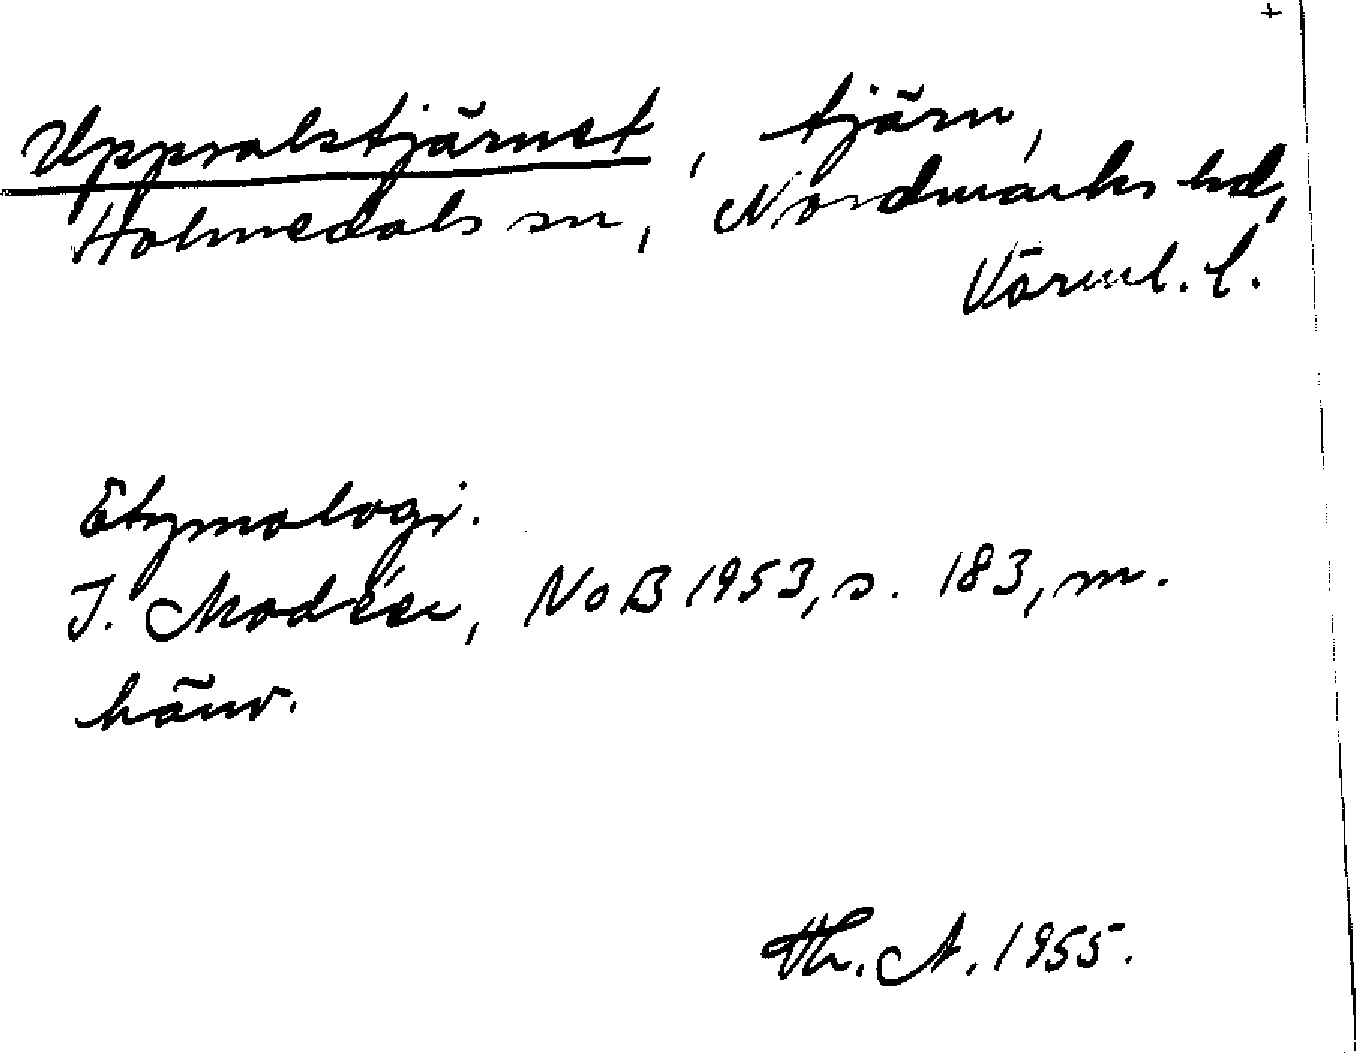 +
Uppsalstjärnet, tjärn,
Holmedals sn, Nordmarks hd,
Värml. l.
Etymologi.
I. Modéer, NoB 1953, s. 183, m.
hänv.
Th. A. 1955.